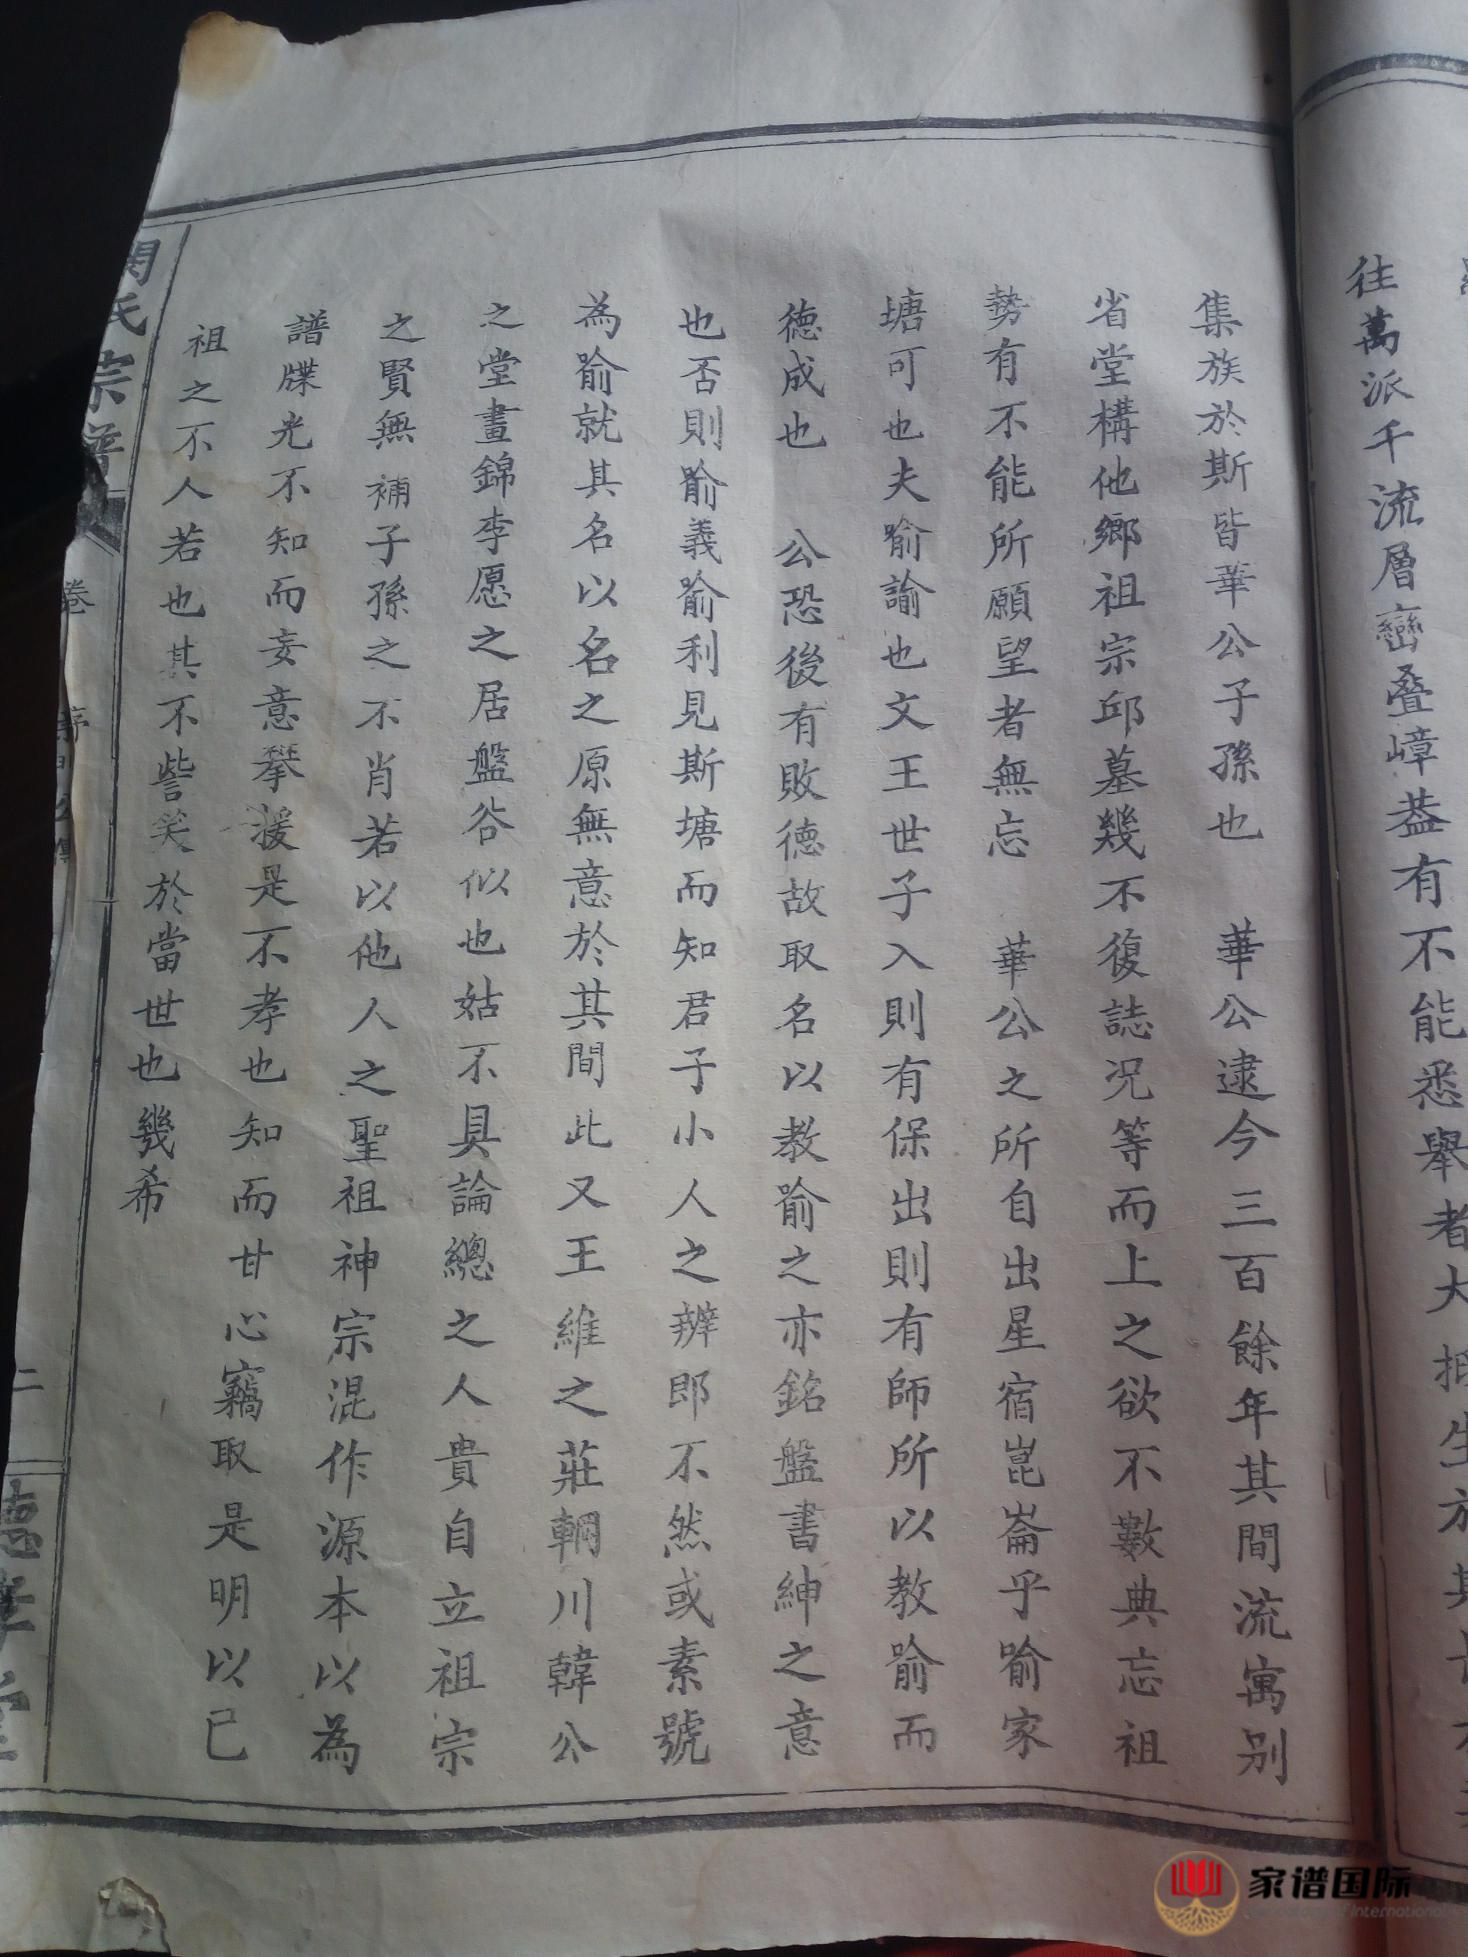 往萬派千流層巒叠嶂葢有不能悉舉者大
集族於斯皆華公子孫也　華公逮今三百餘年其間流寓别
省堂構他鄉祖宗邱墓幾不復誌况等而上之欲不數典忘祖
勢有不能所願望者無忘　華公之所自出星宿崑崙乎喻家
塘可也夫喻諭也文王世子入則有保出則有師所以教喻而
德成也　公恐後有敗德故取名以教喻之亦銘盤書紳之意
也否則喻義喻利見斯塘而知君子小人之辨即不然或素號
為喻就其名以名之原無意於其間此又王維之莊輞川韓公
之堂晝錦李愿之居盤谷似也姑不具論總之人貴自立祖宗
之賢無補子孫之不肖若以他人之聖祖神宗混作源本以為
譜牒光不知而妄意攀援是不孝也知而甘心竊取是明以已
祖之不人若也其不訾笑於當世也幾希
氏宗譜
卷
序
二
家谱国际